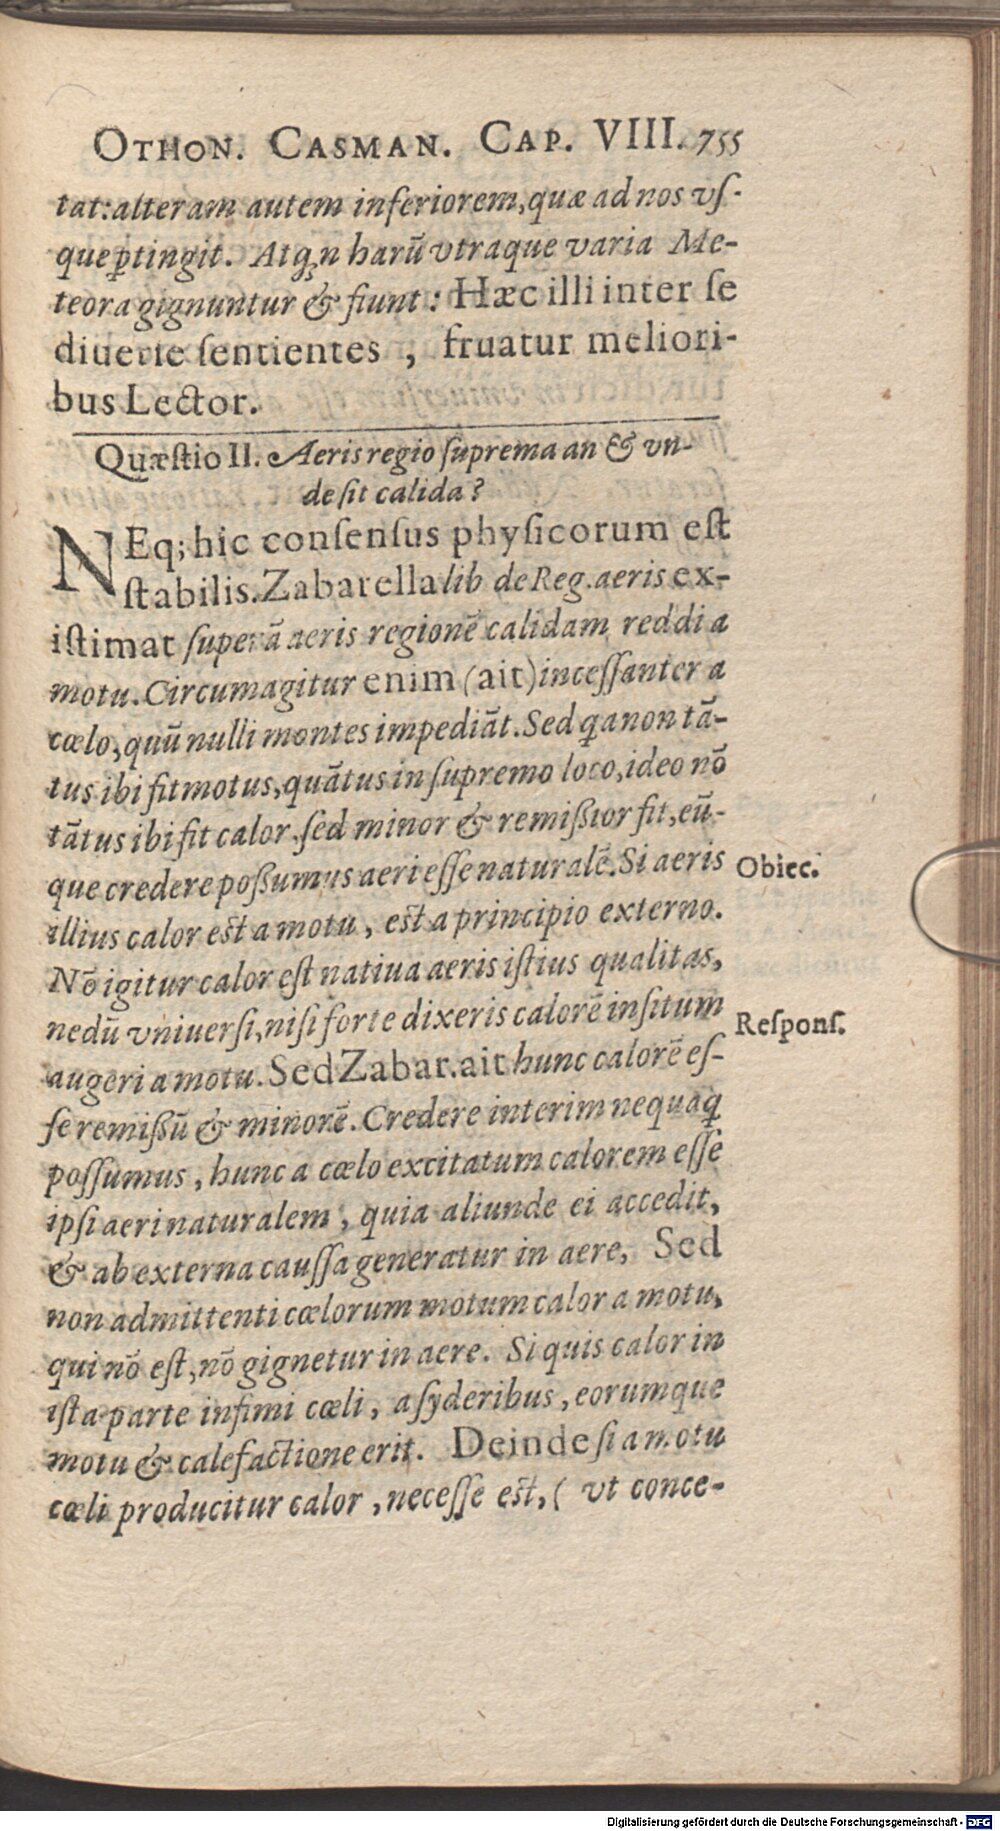 OTHON. CASMAN. CAP. VIII. 755
tat: alteram autem inferiorem, quæ ad nos vſ-
que ꝑtingit. Atq̃ in harũ vtraque varia Me-
teora gignuntur & fiunt: Hæc illi inter ſe
diuerſe ſentientes, fruatur meliori-
bus Lector.
Quæſtio II. Aeris regio ſuprema an & vn-
de ſit calida?
NEq; hic conſenſus phyſicorum eſt
ſtabilis. Zabarella lib de Reg. aeris ex-
iſtimat ſuperã aeris regionẽ calidam reddi a
motu. Circumagitur enim (ait) inceſſanter a
cœlo, quũ nulli montes impediãt. Sed qa non tã-
tus ibi fit motus, quãtus in ſupremo loco, ideo nõ
tãtus ibi fit calor, ſed minor & remiſſior fit, eũ-
que credere poſſumus aeri eſſe naturalẽ. Si aeris
Obiec.
illius calor eſt a motu, eſt a principio externo.
Nõ igitur calor eſt natiua aeris iſtius qualitas,
nedũ vniuerſi, niſi forte dixeris calorẽ inſitum
Reſponſ.
augeri a motu. Sed Zabar. ait hunc calorẽ eſ-
ſe remiſſũ & minorẽ. Credere interim nequaq̃
poſſumus, hunc a cœlo excitatum calorem eſſe
ipſi aeri naturalem, quia aliunde ei accedit,
& ab externa cauſſa generatur in aere, Sed
non admittenti cœlorum motum calor a motu,
qui nõ eſt, nõ gignetur in aere. Si quis calor in
iſta parte infimi cœli, a ſyderibus, eorumque
motu & calefactione erit. Deinde ſi a motu
cœli producitur calor, neceſſe eſt, ( vt conce-
Digitalisierung gefördert durch die Deutsche Forschungsgemeinschaft - DFG